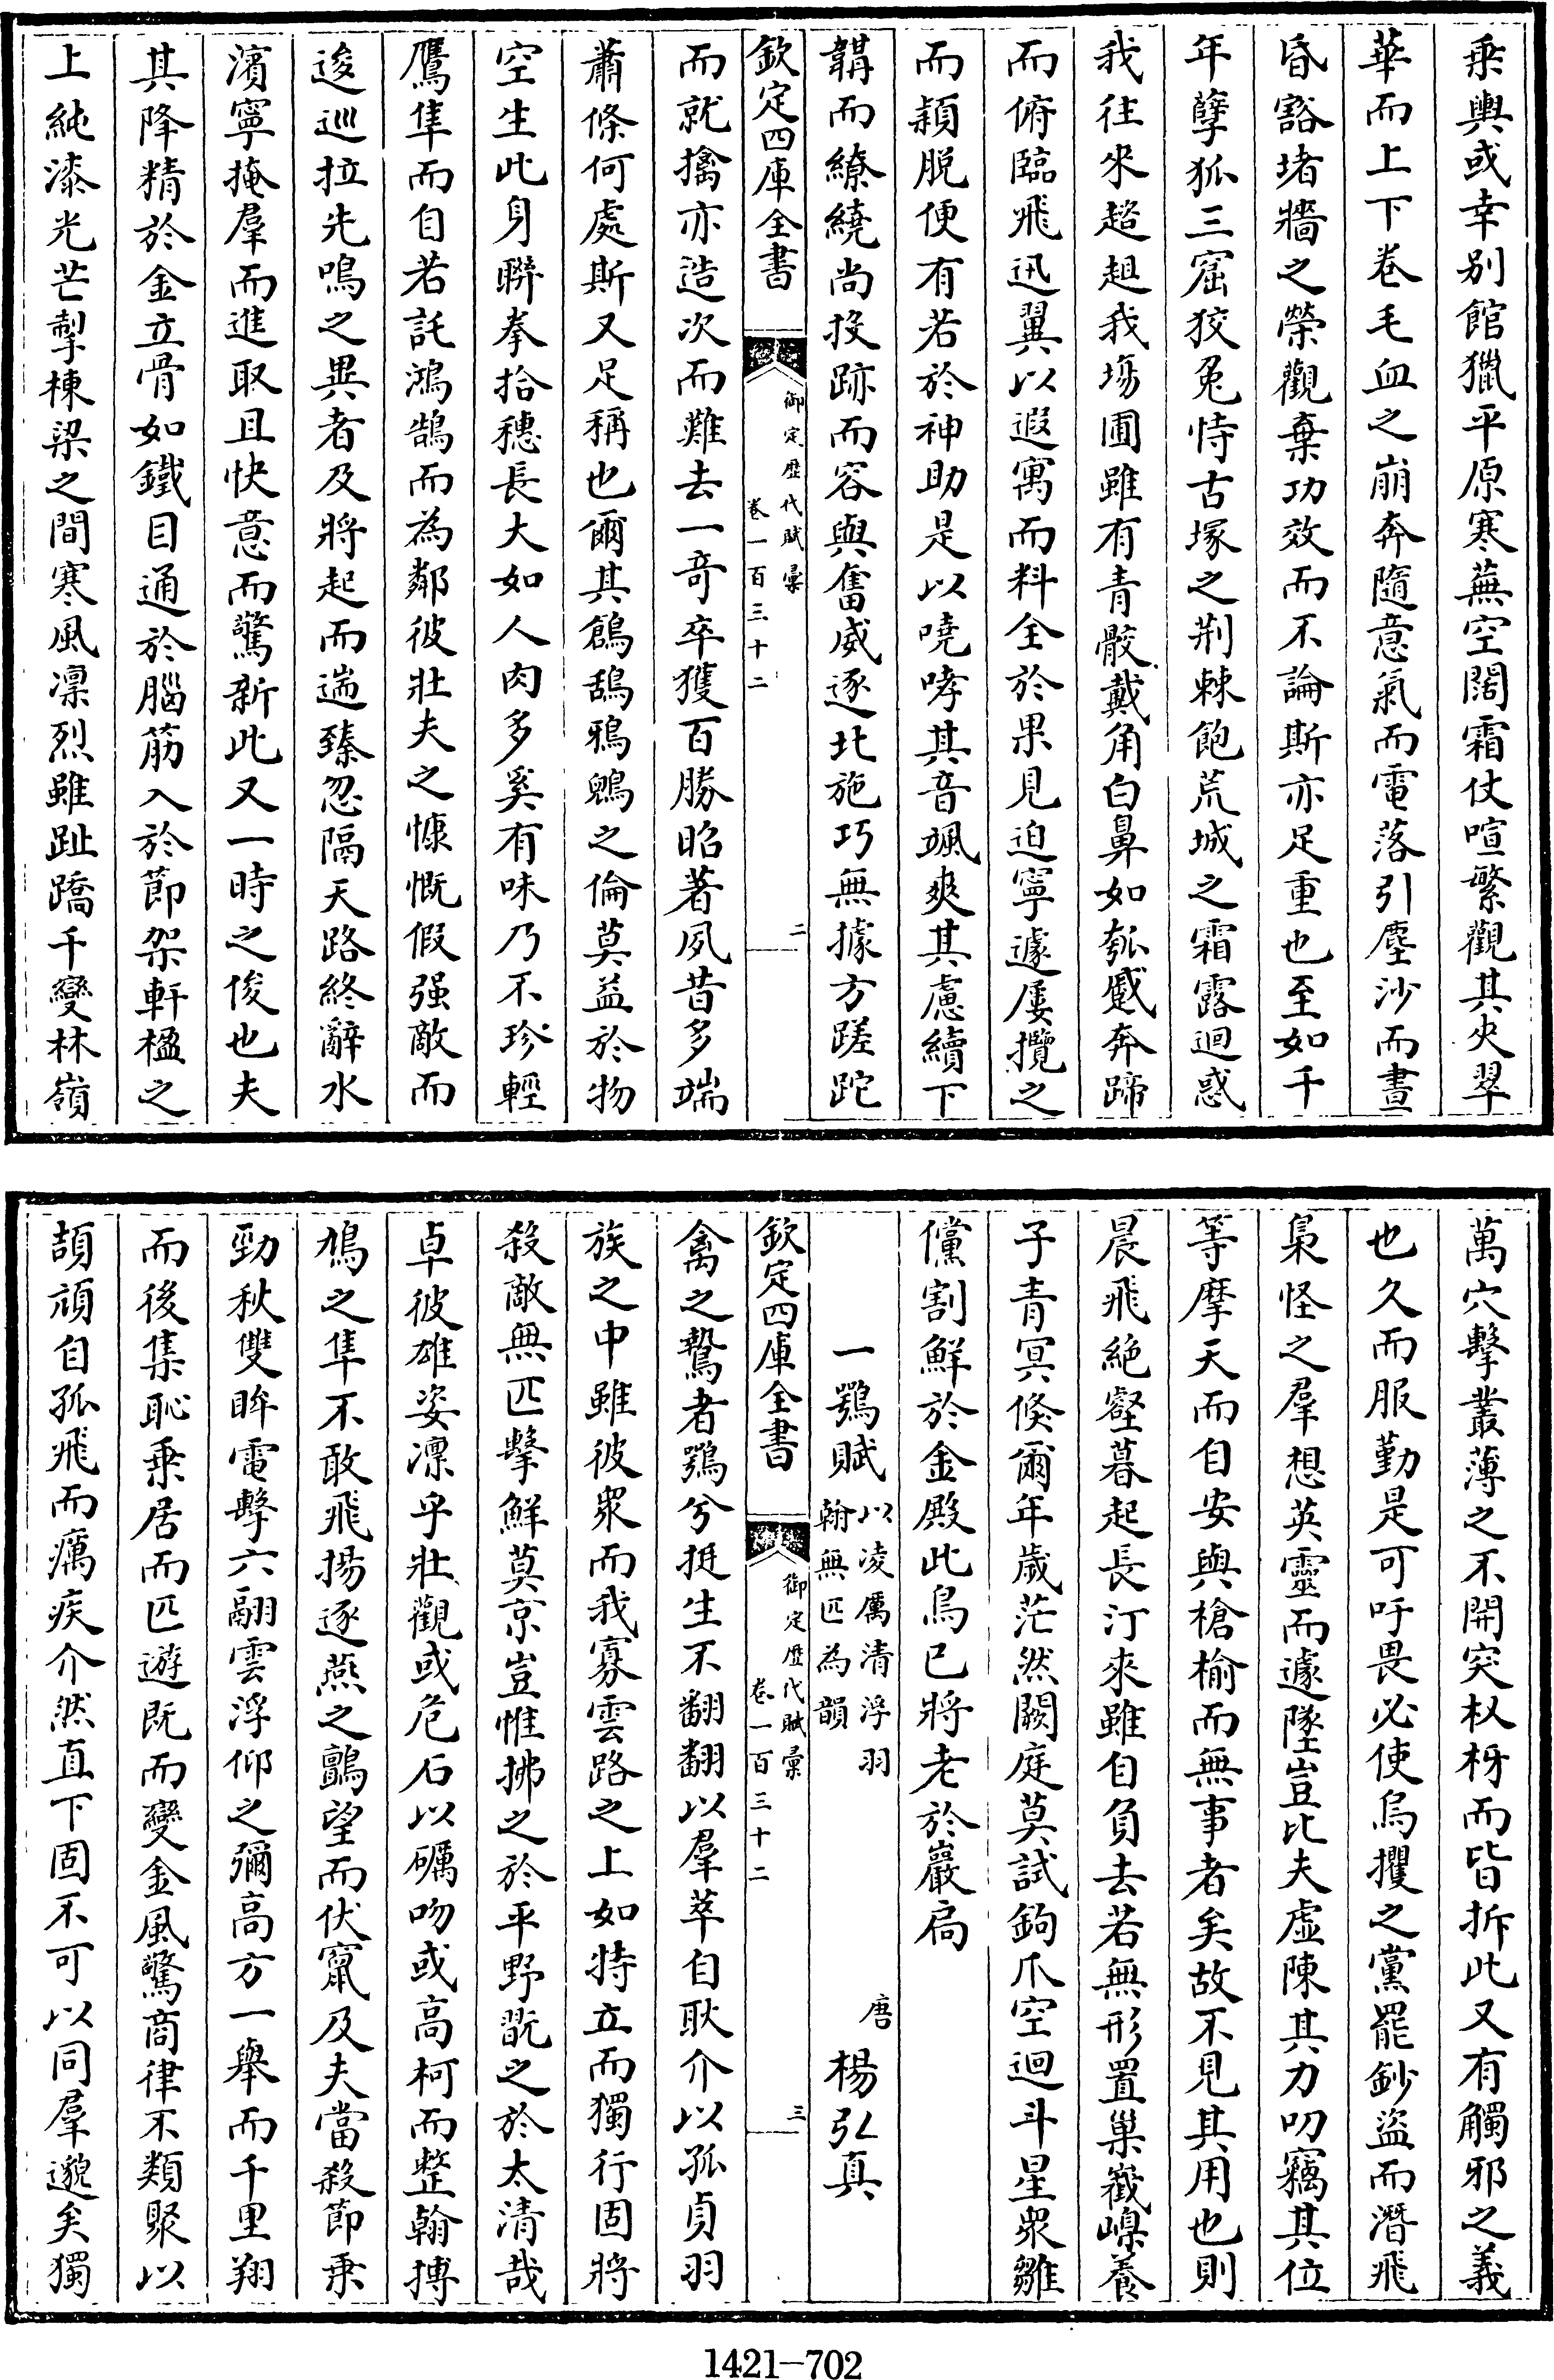 乗輿或幸别館獵平原寒蕪空闊霜仗喧繁觀其夾翠
華而上下卷毛血之崩奔隨意氣而電落引塵沙而晝
昏豁堵牆之榮觀棄功效而不論斯亦足重也至如千
年孽狐三窟狡兔恃古塚之荆棘飽荒城之霜露迴惑
我往來趦趄我場圃雖有青骹戴角白鼻如瓠蹙奔蹄
而俯臨飛迅翼以遐寓而料全於果見迫寧遽屢攬之
而穎脱便有若於神助是以嘵哮其音颯爽其慮續下
韝而繚繞尚投跡而容與奮威逐北施巧無據方蹉跎
欽定四庫全書
御定歷代賦彙
卷一百三十二
二
而就擒亦造次而難去一竒卒獲百勝昭著夙昔多端
蕭條何處斯又足稱也爾其鶬鴰鴉鶂之倫莫益於物
空生此身聯拳拾穗長大如人肉多奚有味乃不珍輕
鷹隼而自若託鴻鵠而為鄰彼壯夫之慷慨假强敵而
逡巡拉先鳴之異者及將起而遄臻忽隔天路終辭水
濱寧掩羣而進取且快意而驚新此又一時之俊也夫
其降精於金立骨如鐵目通於腦筋入於節架軒楹之
上純漆光芒掣棟梁之間寒風凛烈雖趾蹻千變林嶺
萬穴擊叢薄之不開突杈枒而皆折此又有觸邪之義
也久而服勤是可吁畏必使烏攫之黨罷鈔盜而潛飛
梟怪之羣想英靈而遽墜豈比夫虚陳其力叨竊其位
等摩天而自安與槍榆而無事者矣故不見其用也則
晨飛絶壑暮起長汀來雖自負去若無形置巢嶻嵲養
子青冥倐爾年歲茫然闕庭莫試鉤爪空迴斗星衆雛
儻割鮮於金殿此鳥已將老於巖扃
一鶚賦 以凌厲清浮羽翰無匹為韻 唐 楊弘真
欽定四庫全書
御定歷代賦彙
卷一百三十二
三
禽之鷙者鶚兮挺生不翻翻以羣萃自耿介以孤貞羽
族之中雖彼衆而我寡雲路之上如特立而獨行固將
殺敵無匹擊鮮莫京豈惟拂之於平野翫之於太清哉
卓彼雄姿凛乎壯觀或危石以礪吻或高柯而整翰搏
鳩之隼不敢飛揚逐燕之鸇望而伏竄及夫當殺節乗
勁秋雙眸電擊六翮雲浮仰之彌高方一舉而千里翔
而後集恥乗居而匹遊既而變金風驚商律不類聚以
頡頏自孤飛而癘疾介然直下固不可以同羣邈矣獨
1421-702